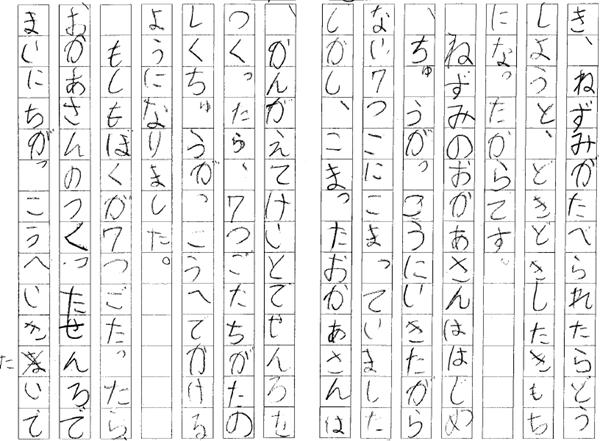 き、ねずみがたべられたらどう
しようと、どきどきしたきもち
になったからです。
ねずみのおかあさんははじめ
、ちゅうがっこうにいきたがら
ない7つこにこまっていました
しかし、こまったおかあさんは
、かんがえてけいとでせんろを
つくったら、7つごたちがたの
しくちゅうがっこうへでかける
ようになりました。
もしもぼくが7つごだったら、
おかあさんのつくったせんろで
まいにちがっこうへいきたいで